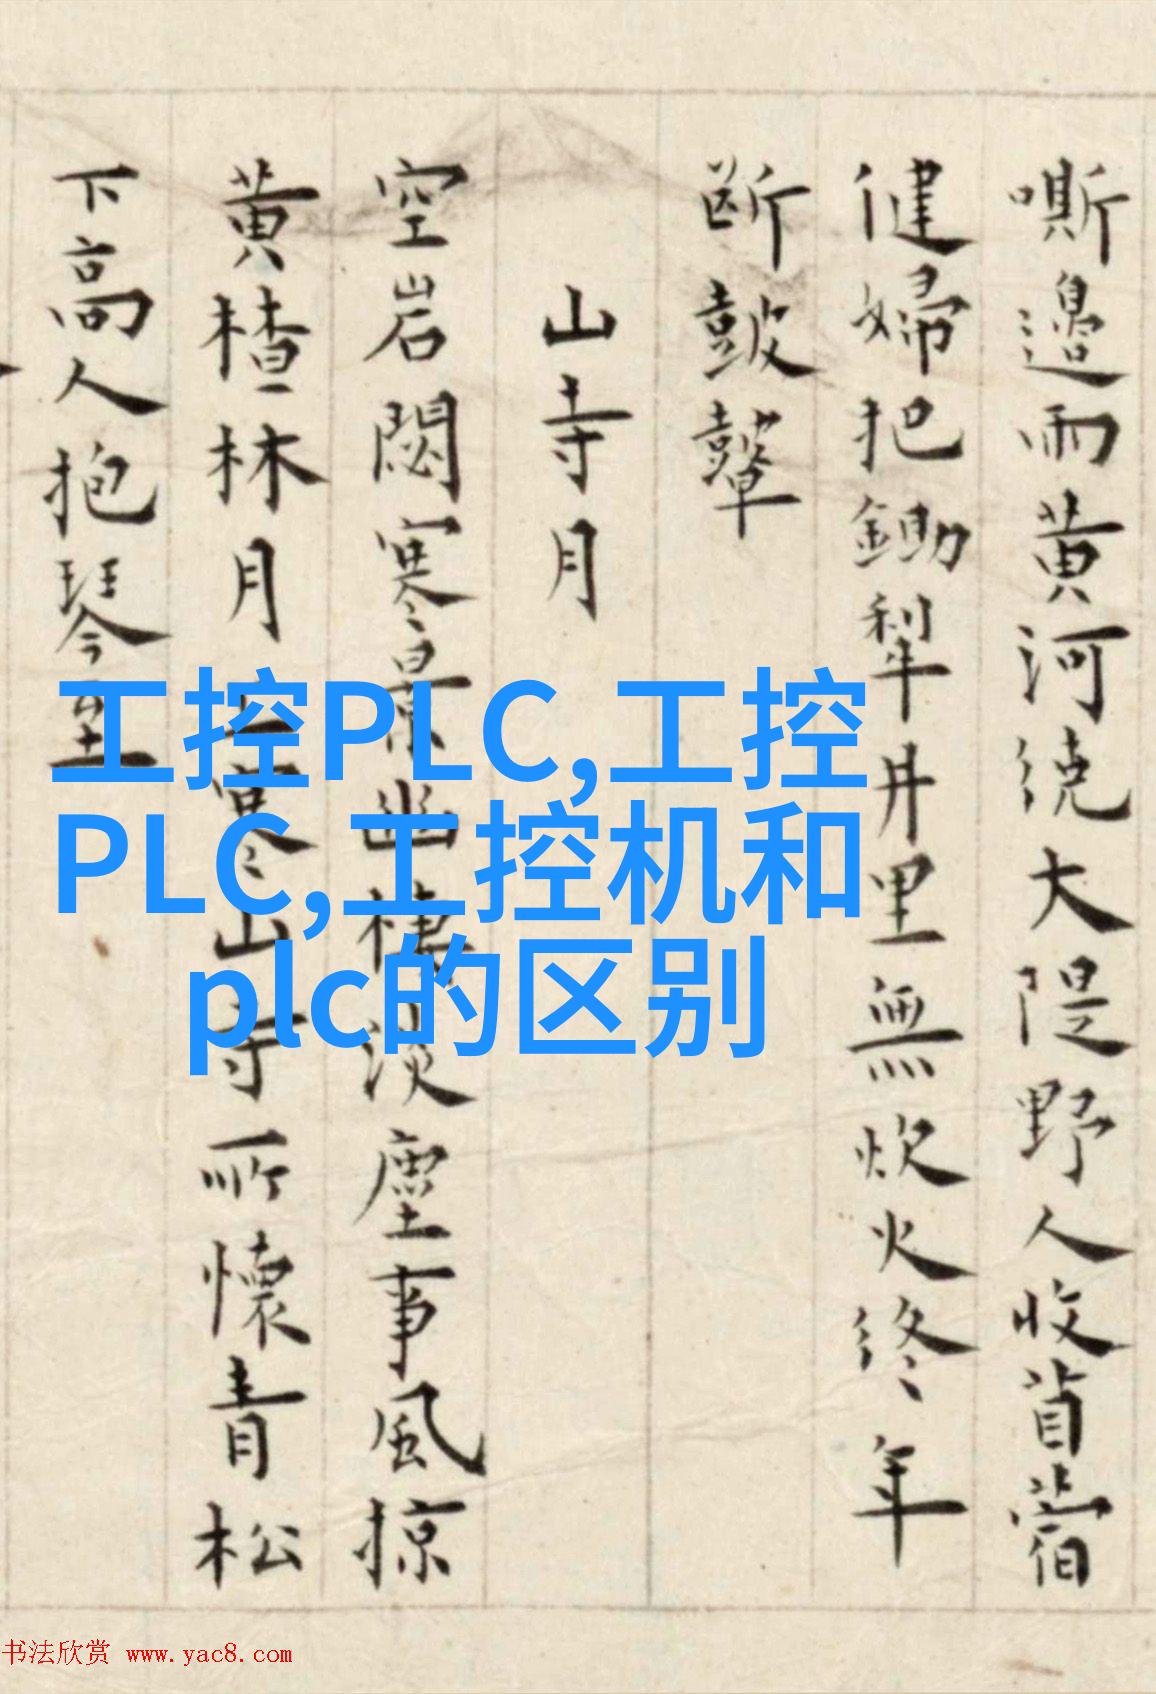 嘶邊雨黄河繞大隄野人收苜蓿
健婦把鋤犁井里無炊火終年
斷鼓鼙
山寺月
空岩閟寒景幽棲淡塵事風掠
黄樝林月上寒山寺所懷青松
下高人抱琴至
工控PLC,工控
PLC,工控机和
plc的区别
书法欣赏 www.yac8.com